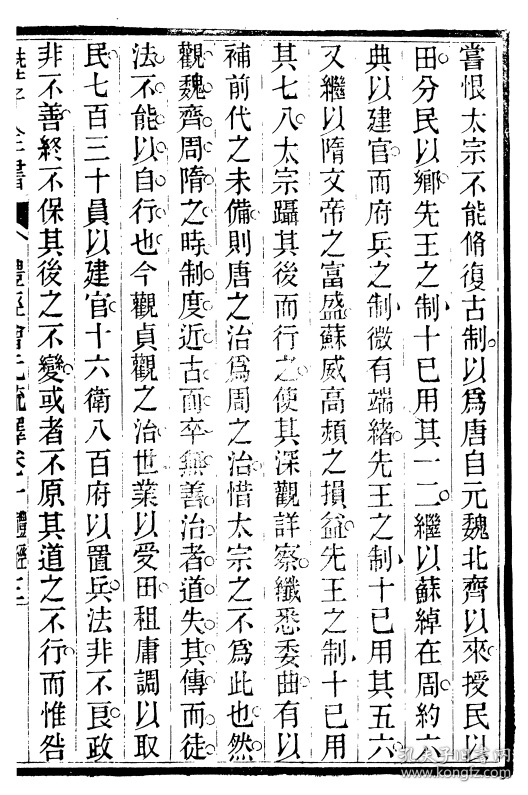 嘗恨太宗不能脩復古制。以爲唐自元魏北齊以來。授民以
田。分民以鄉。先王之制十已用其一二。繼以蘇綽在周約六
典以建官。而府兵之制。微有端緒。先王之制。十已用其五六。
又繼以隋文帝之富盛。蘇威高熲之損益。先王之制。十已用
其七八。太宗躡其後而行之。使其深觀詳察。纖悉委曲。有以
補前代之未備。則唐之治。爲周之治。惜太宗之不爲此也。然
觀魏齊周隋之時。制度近古。而卒無善治者。道失其傳而徒
法不能以自行也。今觀貞觀之治。世業以受田。租庸調以取
民。七百三十員以建官。十六衛八百府以置兵。法非不良。政
非不善。終不保其後之不變。或者不原其道之不行。而惟咎
全書 禮經會元疏釋卷一 禮經
孔夫子旧书网
www.kongfz.com